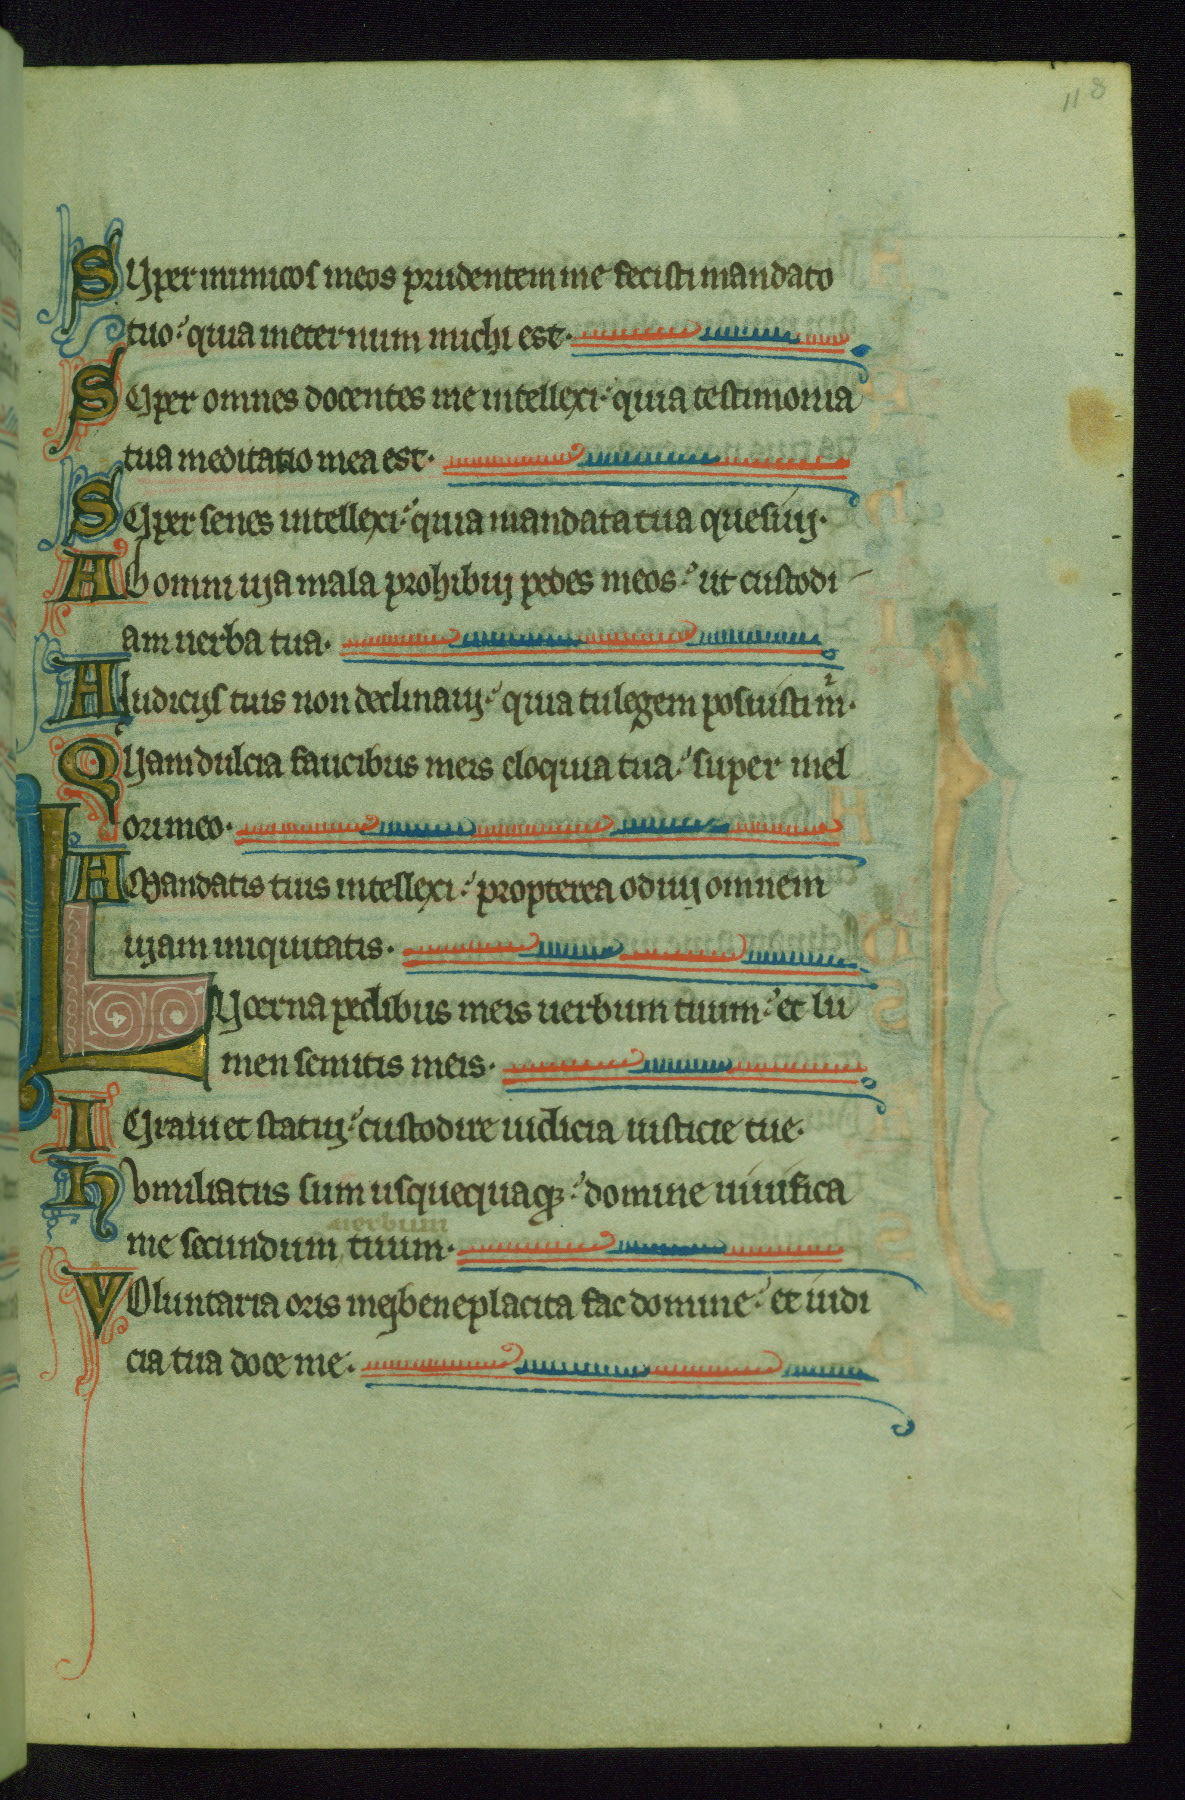 118
Super inimicos meos prudentem me fecisti mandato
tuo: quia in eternum michi est.
Super omnes docentes me intellexi: quia testimonia
tua meditatio mea est.
Super senes intellexi: quia mandata tua quesiui.
Ab omni uia mala prohibui pedes meos: ut custodi
am uerba tua.
A iudiciis tuis non declinaui: quia tu legem posuisti m.
Quam dulcia faucibus meis eloquia tua: super mel
ori meo.
A Mandatis tuis intellexi: propterea odiui omnem
uiam iniquitatis.
Lucerna pedibus meis uerbum tuum: et lu
men semitis meis.
Iuraui et statui: custodire iudicia iusticie tue.
humiliatus sum usquequaq: domine uiuifica
uerbum
me secundum tuum.
Voluntaria oris mei beneplacita fac domine: et iudi
cia tua doce me.